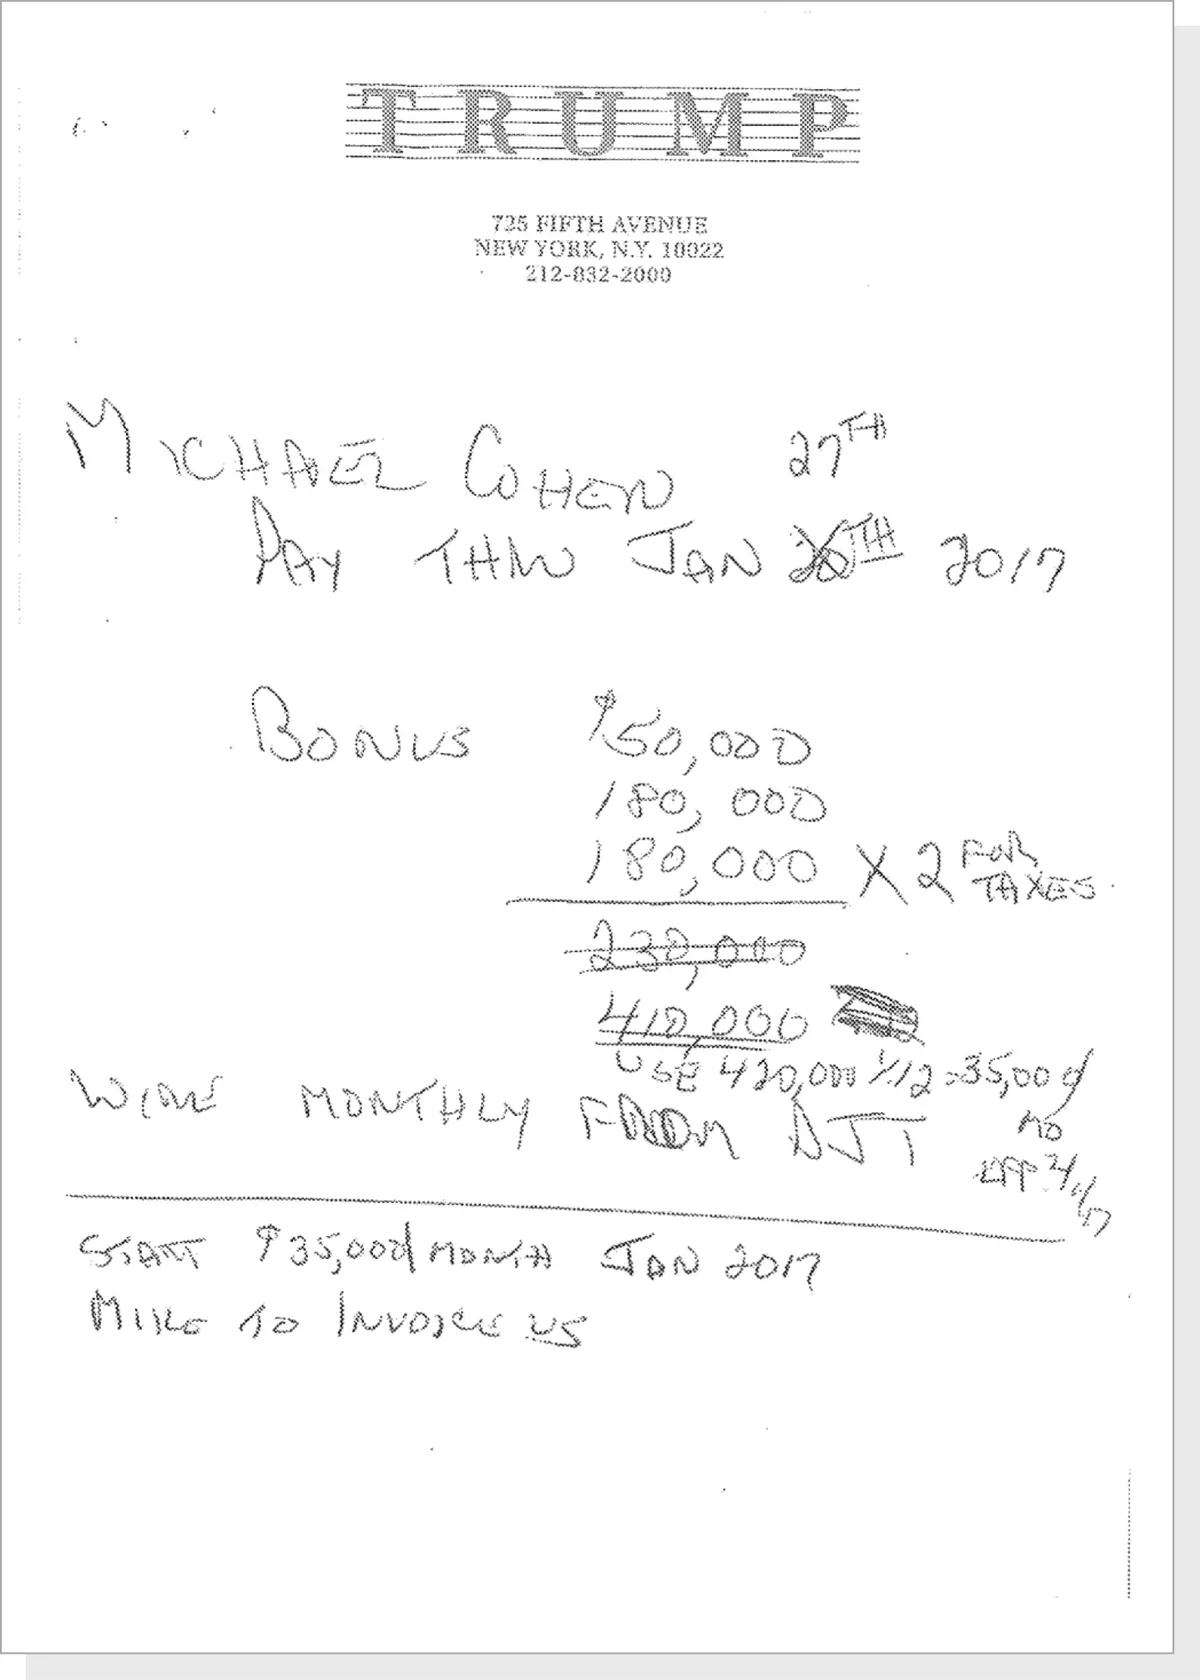 TRUMP
725 FIFTH AVENUE
NEW YORK, N.Y. 10022
212-832-2000
MICHAEL COHEN 27TH
PAY THRU JAN 20TH 2017
BONUS $50,000
180,000
180,000 X 2 FOR TAXES
230,000
410,000
USE 420,000 1/12 = 35,000/
MO
WIRE MONTHLY FROM DJT
EFF 2/1/17
START $35,000/MONTH JAN 2017
MIKE TO INVOICE US